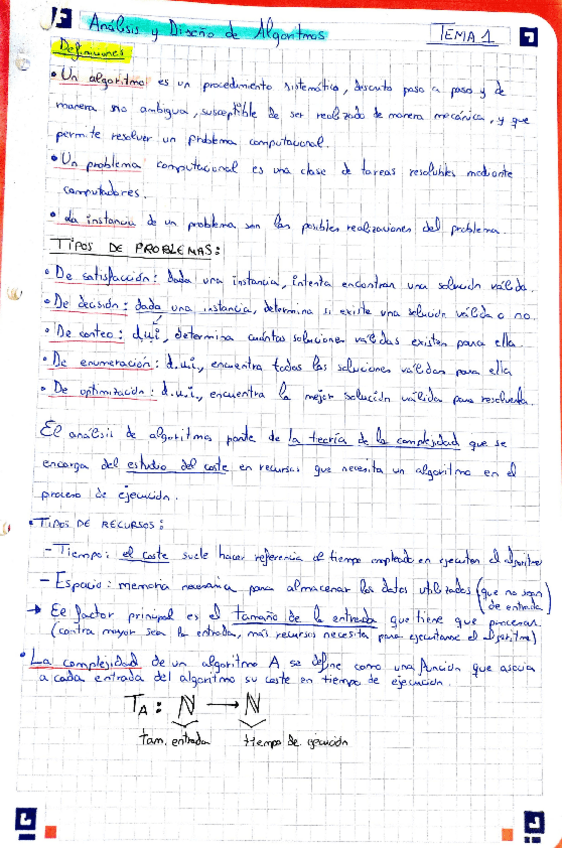 Análisis y Diseño de Algoritmos
TEMA 1
Definiciones
• Un algoritmo es un procedimiento sistemático, descrito paso a paso y de
manera no ambigua, susceptible de ser realizado de manera mecánica, y que
permite resolver un problema computacional.
• Un problema computacional es una clase de tareas resolubles mediante
computadores.
• La instancia de un problema son las posibles realizaciones del problema.
TIPOS DE PROBLEMAS:
• De satisfacción: Dada una instancia, intenta encontrar una solución válida.
• De decisión: dada una instancia, determina si existe una solución válida o no.
• De conteo: d.u.i, determina cuántas soluciones válidas existen para ella.
• De enumeración: d.u.i., encuentra todas las soluciones válidas para ella
• De optimización: d.u.i., encuentra la mejor solución válida para resolverla.
El análisis de algoritmos parte de la teoría de la complejidad que se
encarga del estudio del coste en recursos que necesita un algoritmo en el
proceso de ejecución.
• TIPOS DE RECURSOS:
- Tiempo: el coste suele hacer referencia al tiempo empleado en ejecutar el algoritmo
- Espacio: memoria necesaria para almacenar los datos utilizados (que no sean
de entrada)
→ El factor principal es el tamaño de la entrada que tiene que procesar.
(contra mayor sea la entrada, más recursos necesita para ejecutarse el algoritmo)
• La complejidad de un algoritmo A se define como una función que asocia
a cada entrada del algoritmo su coste en tiempo de ejecución.
T_A: ℕ → ℕ
tam. entrada tiempo de ejecución